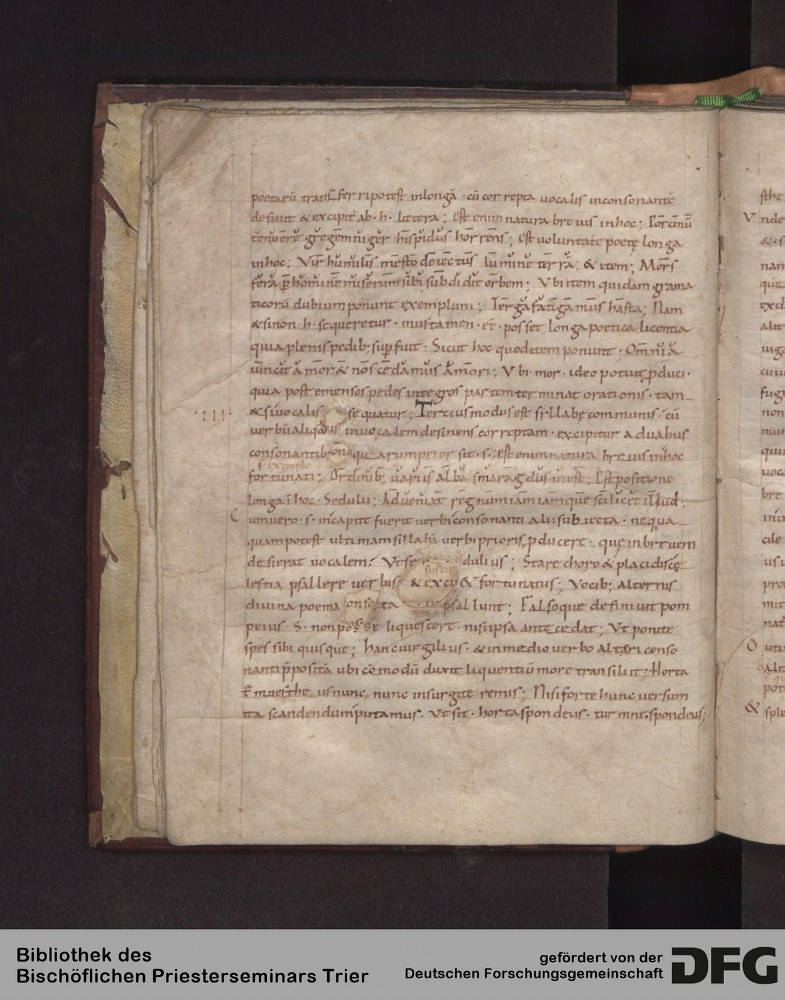 poetarū transferri potest in longā · cū correpta vocalis in consonantē
desinit & excipit᷑ ab · h · littera; Est enim natura brevis in hoc; Porcinū
tenuere gregem niger hispidus horrens; Est voluntate poetę longa
in hoc; Vir humilis mesto deiectus lumine terrā; & item; Mors
fera p̄ homine miserum sibi subdidit orbem; Vbi item quidam grama
ticorū dubium ponunt exemplum; Terga fatigamus hasta; Nam
& si non · h · sequeretur · mus tamen · et · posset longa poetica licentia
quia plenis pedib; sup̄fuit · Sicut hoc quod item ponunt · Omnia
uincit amor & nos cedamus amori; Vbi · mor · ideo potuit p̄duci ·
quia post emensos pedes integros partem terminat orationis · tam
· IIII · & si vocalis sequatur; Tertius modus est syllabę communis · cū
verbū aliquod in vocalem desinens correptam · excipitur a duabus
consonantib; quarum prior sit · s · Est enim natura brevis in hoc
exemplo
fortunati; Ordinib; variis alba smaragdus inest; Est positione
longa in hoc · Sedulii; Adveniat regnum iam iamque scilicet illud ·
um vero · s · in capite fuerit verbi consonanti alii subiecta · nequa
quam potest ultimam sillabā verbi prioris p̄ducere · que in brevem
desierat vocalem; Vt se dulius; Stare choro & placidis cę
lestia psallere verbis & fortunatus; Vocib; alternis
divina poema psallunt; Falsoque definivit pom
peius · S · non posse liquescere · nisi ipsa antecedat; Vt ponite
spes sibi quisque; Hanc virgilius · & in medio verbo alteri conso
nanti p̄posita ubi cōmodū duxit liquentiū more transiliit; Horta
tur mnesthe us nunc, nunc insurgite remis; Nisi forte hunc versum
ita scandendum putamus · Vt sit · horta spondeus · tur mnes · spondeus;
Bibliothek des
Bischöflichen Priesterseminars Trier
gefördert von der
Deutschen Forschungsgemeinschaft
DFG